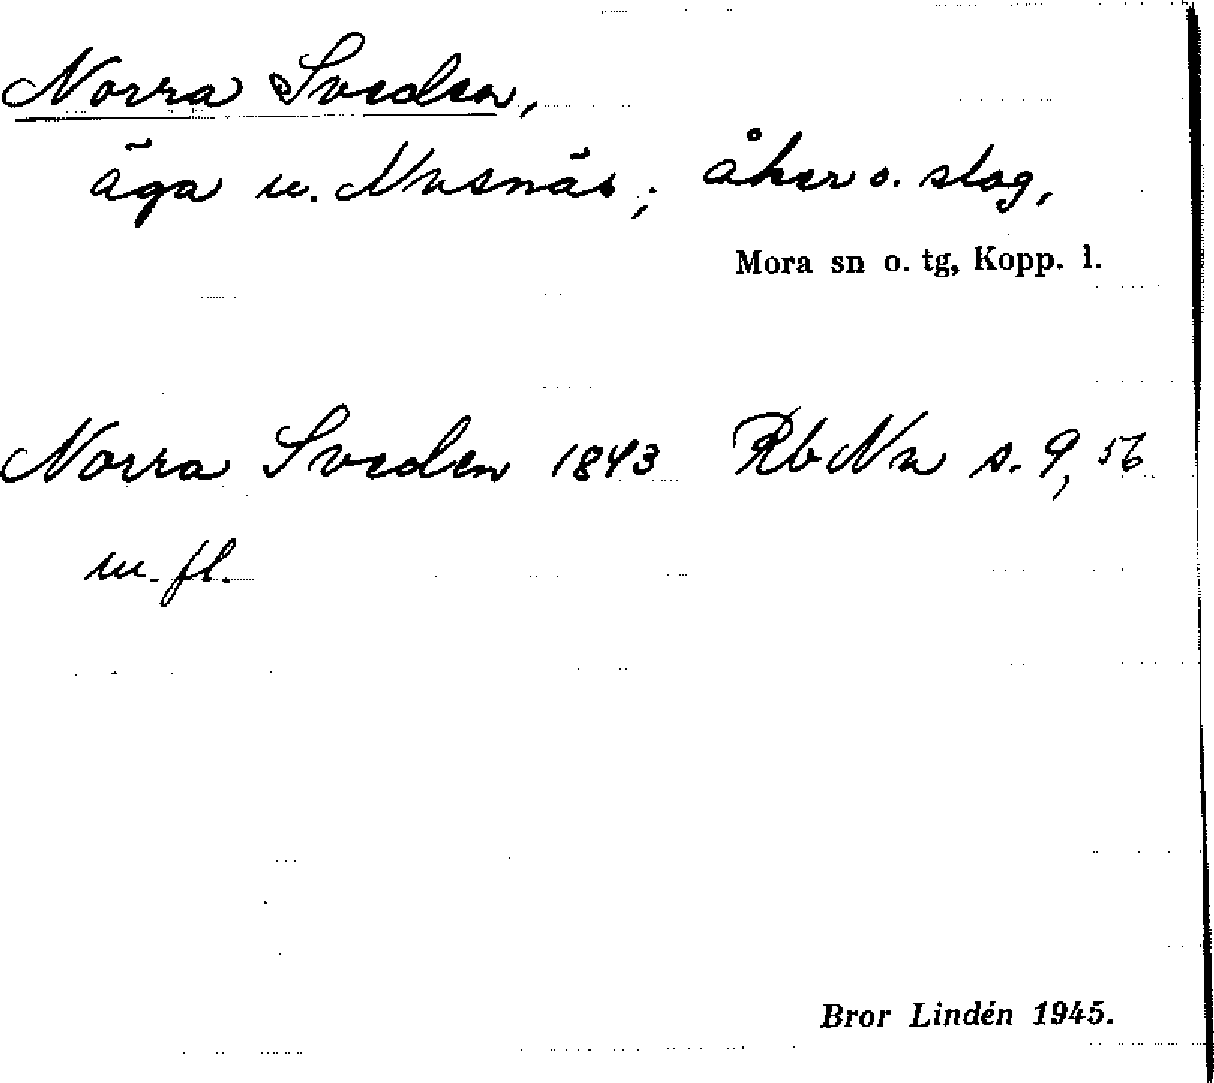 Norra Sveden,
äga u. Nusnäs; åker o. slog,
Mora sn o. tg, Kopp. l.
Norra Sveden 1843 Rb Nu s. 9, 56
m. fl.
Bror Lindén 1945.